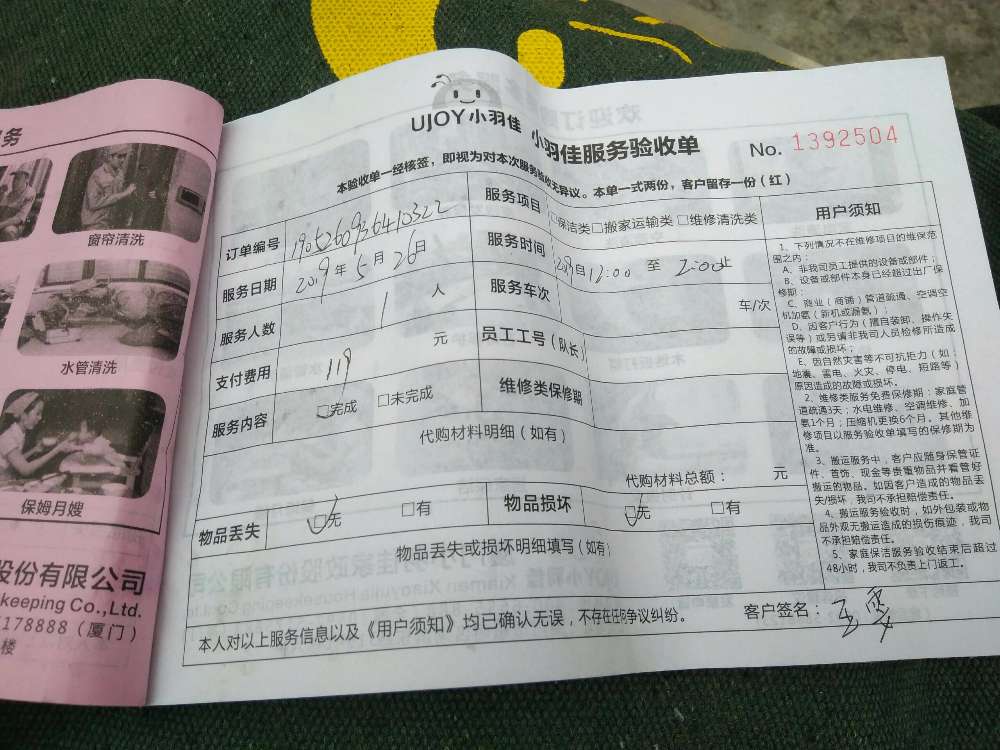 务
窗帘清洗
水管清洗
保姆月嫂
股份有限公司
keeping Co.,Ltd.
178888（厦门）
楼
UJOY小羽佳 小羽佳服务验收单
No. 1392504
本验收单一经核签，即视为对本次服务验收无异议。本单一式两份，客户留存一份（红）
订单编号
服务项目 □保洁类□搬家运输类 □维修清洗类
服务日期 2019年5月26日
服务时间 12:00 至 2:00止
服务人数 1 人
服务车次 车/次
支付费用 119 元
员工工号（队长）
服务内容 □完成 □未完成
维修类保修期
代购材料明细（如有）
代购材料总额： 元
物品丢失 □无 □有 物品损坏 □无 □有
物品丢失或损坏明细填写（如有）
本人对以上服务信息以及《用户须知》均已确认无误，不存在任何争议纠纷。
客户签名：
用户须知
1、下列情况不在维修项目的维保范
围之内：
A、非我司员工提供的设备或部件；
B、设备或部件本身已经超过出厂保
修期；
C、商业（商通）管道疏通、空调空
机加氨（新机或漏氨）；
D、因客户行为（擅自装卸、操作失
误等）或另请非我司人员检修所造成
的故障或损坏；
E、因自然灾害等不可抗力（如：
地震、雷电、火灾、停电、短路等）
原因造成的故障或损坏。
2、维修类服务免费保修期：家庭管
道疏通3天；水电维修、空调维修、加
氨1个月；压缩机更换6个月。其他维
修项目以服务验收单填写的保修期为
准。
3、搬运服务中，客户应随身保管证
件、首饰、现金等贵重物品并看管好
搬运的物品。如因客户造成的物品丢
失/损坏，我司不承担赔偿责任。
4、搬运服务验收时，如外包装或物
品外观无搬运造成的损伤痕迹，我司
不承担赔偿责任。
5、家庭保洁服务验收结束后超过
48小时，我司不负责上门返工。